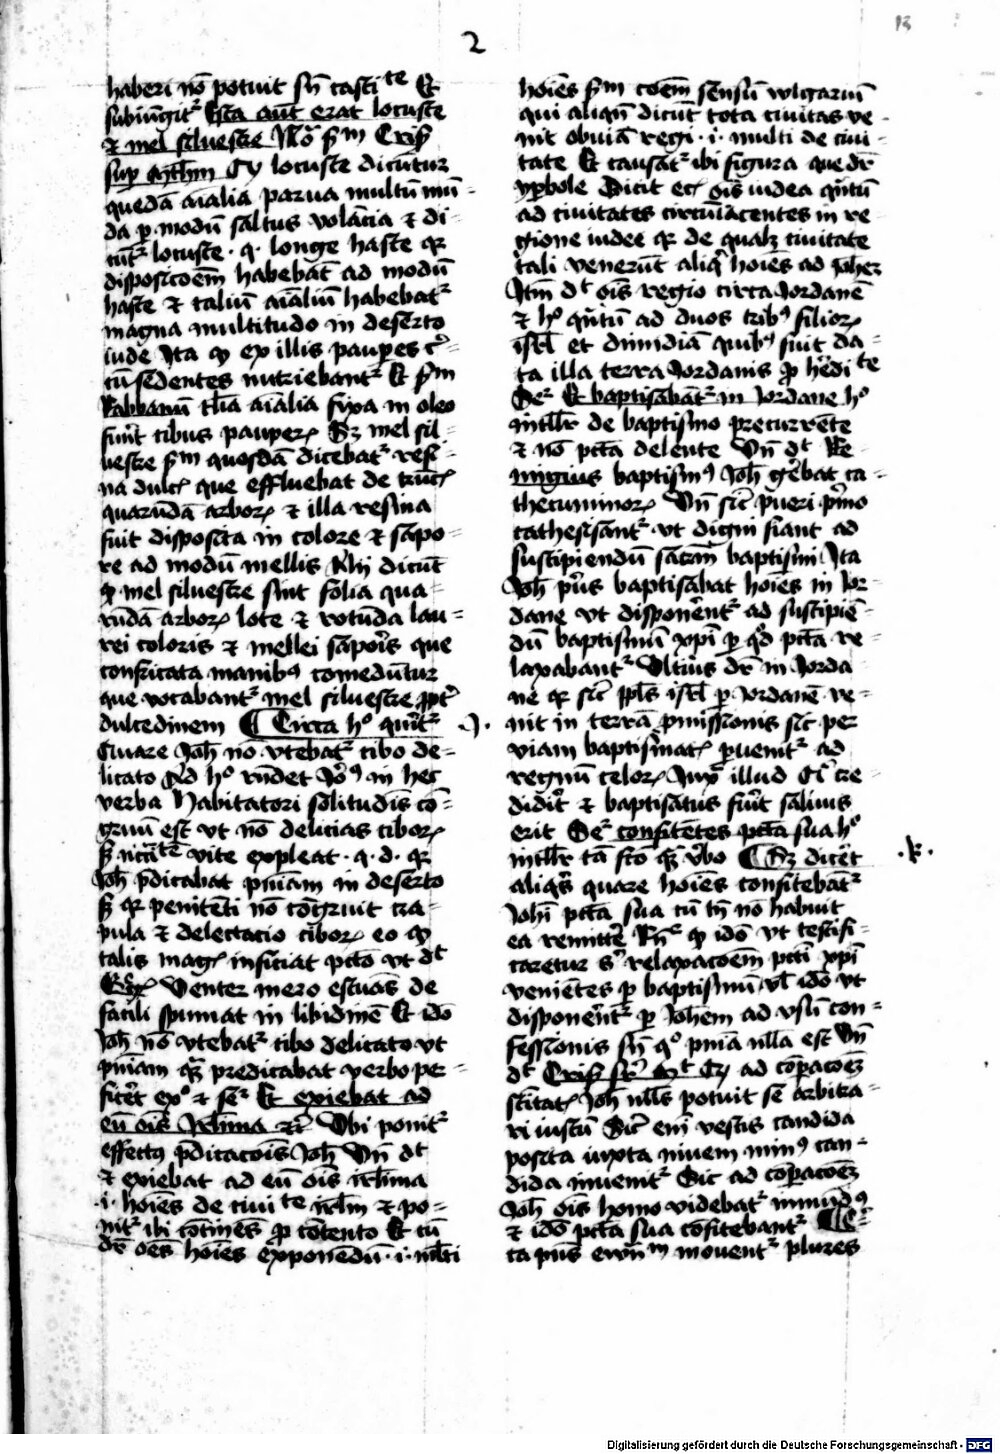 2
13
haberi nō potuit sn̄ casti te Et
subiūgitᷣ Esca aūt erat locuste
⁊ mel siluestre Nō sm Cris
suꝑ Math̄m locuste dicūtur
quedā aīalia parua multū mū-
da ꝑ modū saltus volācia ⁊ di-
cūtᷣ locuste · q · longe haste qr
disposicōem habebāt ad modū
haste ⁊ taliū aīaliū habebatᷣ
magna multitudo in deserto
iude Ita ꝙ ex illis pauꝑes
sedentes nutriebantᷣ Et sm
Rabbanū aīalia fixa in oleo
fiūt cibus pauperꝝ Sꝫ mel sil-
uestre sm quosdā dicebatᷣ resi-
na dulcꝭ que effluebat de
quarūdā arborꝝ ⁊ illa resina
fuit disposita in colore ⁊ sapo-
re ad modū mellis Alij dicūt
ꝙ mel siluestre sint folia qua-
rūdā arborꝝ late ⁊ rotūda lau-
rei coloris ⁊ mellei sapōis que
confricata manibꝰ comedūtur
que vocabantᷣ mel siluestre ꝓpt̄
dulcedinem Circa hº querītᷣ
Quare Joh̄ nō vtebatᷣ cibo de-
licato Ad hº rn̄det in hec
verba Habitatori solitudīs cō-
gruū est vt nō delicias ciborꝝ
s̄ vite expleat · q · d · qr
Joh̄ p̄dicabat pn̄iam in deserto
s̄ qr penitēti nō cōgruit cra-
pula ⁊ delectacio ciborꝝ eo ꝙ
talis magꝭ inficiat pctō vt dt
Venter mero estuās de
facili spumat in libidinē Et idō
Joh̄ nō vtebatᷣ cibo delicato vt
pn̄iam quā predicabat verbo per-
ficeret exº ⁊ Et exiebat ad
eū oīs Jrlīma Ubi ponitᷣ
effectꝰ p̄dicacōis Joh̄ Vn̄ dt
⁊ exiebat ad eū oīs ierlīma
· i · hoīes de ciui te irlm̄ ⁊ po-
nitᷣ ibi cōtinēs ꝓ cōtento Et cū
dr̄ oēs hoīes exponēdū · i · ml̄ti
hoīes sm cōem sensū vulgariū
qui aliqn̄ dicūt tota ciuitas ve-
nit obuiā regi · i · multi de ciui-
tate Et causatᷣ ibi figura que dr̄
yperbole Dicit ec̄ oīs iudea qn̄tū
ad ciuitates circūiacentes in re-
gione iudee qr de qualꝫ ciuitate
tali venerūt aliq̄ hoīes ad Joh̄eꝫ
Itm dt oīs regio circa Jordanē
⁊ hº qn̄tū ad duos tribꝰ filiorꝝ
isrl̄ et dimidiā quibꝰ fuit da-
ta illa terra Jordanis ꝓ hēdi te
Et baptisabātᷣ in Jordane hº
intll̄r de baptismo precurrēte
⁊ nō pctā delente Vn̄ dt Re-
migius baptismꝰ Joh̄ gēbat ca-
thecuminorꝝ Vn̄ sic̄ pueri p̄mo
cathesisantᷣ vt digni fiant ad
suscipiendū sacm̄ baptismi Ita
Joh̄ pꝰus baptisabat hoīes in Jor-
dane vt disponerentᷣ ad suscipiē-
dū baptismū xp̄i ꝑ qd̄ pctā re-
laxabantᷣ Vlterius dr̄ in Jorda-
ne qr sic̄ ppl̄s isrl̄ ꝑ Jordanē ve-
nit in terrā ꝓmissionis sic ꝑ
viam baptismatꝭ ꝑuenitᷣ ad
regnū celorꝝ Juxᵃ illud Qi cre-
diderit ⁊ baptisatus fuit saluus
erit Seᷣ confitētes pctā sua hº
intll̄r tā fcō qᷓ verbo Sꝫ diceret · k ·
aliqͥs quare hoīes confitebātᷣ
Johī pctā sua cū tn̄ nō habuit
ea remittere Rn̄ ꝙ idō vt testifi-
caretur relaxacōem pctī xp̄i
venientes ꝑ baptismū vl̄ idō vt
disponerentᷣ ꝑ Joh̄em ad vsū con-
fessionis sn̄ qº pn̄ia nll̄a est Vn̄
dt Cris ad cōpacōeꝫ
sc̄itatꝭ Joh̄ null̄s potuit se arbitra-
ri iustū Sic̄ em̄ vestis candida
posita iuxta niuem minꝰ can-
dida inuenitᷣ Sic ad cōpacōeꝫ
Joh̄ oīs homo videbatᷣ inmūdꝰ
⁊ idō pctā sua cōfitebantᷣ Cir-
ca pn̄s ewn̄m mouentᷣ plures
Digitalisierung gefördert durch die Deutsche Forschungsgemeinschaft - DFG